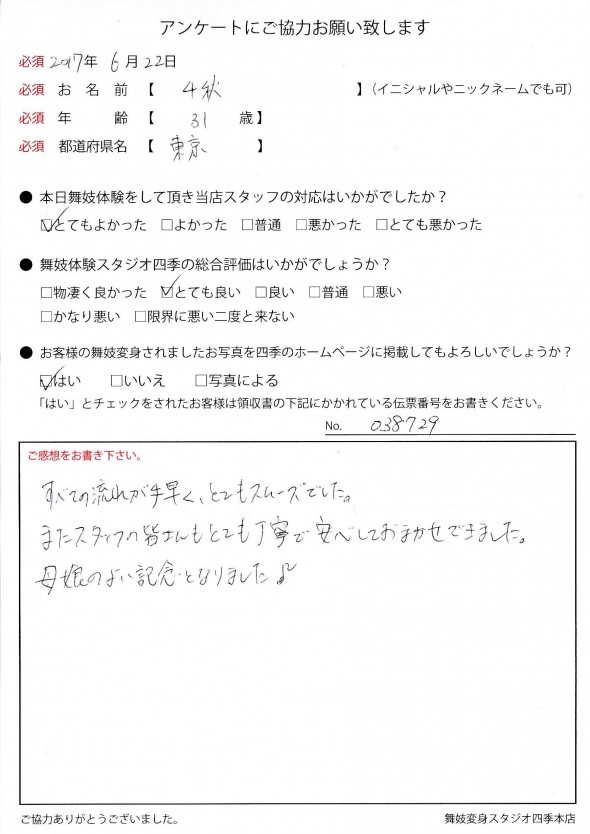 アンケートにご協力お願い致します
必須 2017年 6月22日
必須 お名前【 千秋 】(イニシャルやニックネームでも可)
必須 年齢【 31 歳】
必須 都道府県名【 東京 】
● 本日舞妓体験をして頂き当店スタッフの対応はいかがでしたか?
☑とてもよかった □よかった □普通 □悪かった □とても悪かった
● 舞妓体験スタジオ四季の総合評価はいかがでしょうか?
□物凄く良かった ☑とても良い □良い □普通 □悪い
□かなり悪い □限界に悪い二度と来ない
● お客様の舞妓変身されましたお写真を四季のホームページに掲載してもよろしいでしょうか?
☑はい □いいえ □写真による
「はい」とチェックをされたお客様は領収書の下記にかかれている伝票番号をお書きください。
No. 038729
ご感想をお書き下さい。
すべての流れが手早く、とてもスムーズでした。
またスタッフの皆さんもとても丁寧で安心しておまかせできました。
母娘のよい記念となりました♪
ご協力ありがとうございました。 舞妓変身スタジオ四季本店